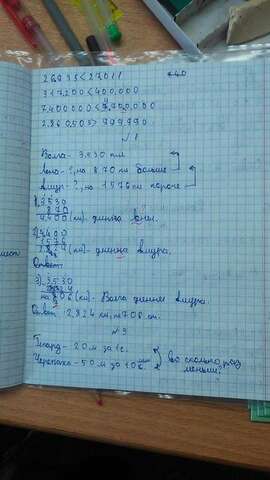 26933<27011
317200<400,000
7.400000<9,900,000
2.860,503>999990
№1
Волга - 3.530 км
Лена - ?, на 870 км больше
Амур - ?, на 1576 км короче
1) 3.530
870
4.400 (км) - длинна Лены.
2) 4.400
1576
2.824 (км) - длинна Амура.
Ответ
3) 3.530
2824
на 706 (км) - Волга длинее Амура.
Ответ: 2.824 км, на 706 км.
№3
Гепард - 20 м за 1 с.
Черепаха - 50 м за 10 мин
Во сколько раз
меньше?